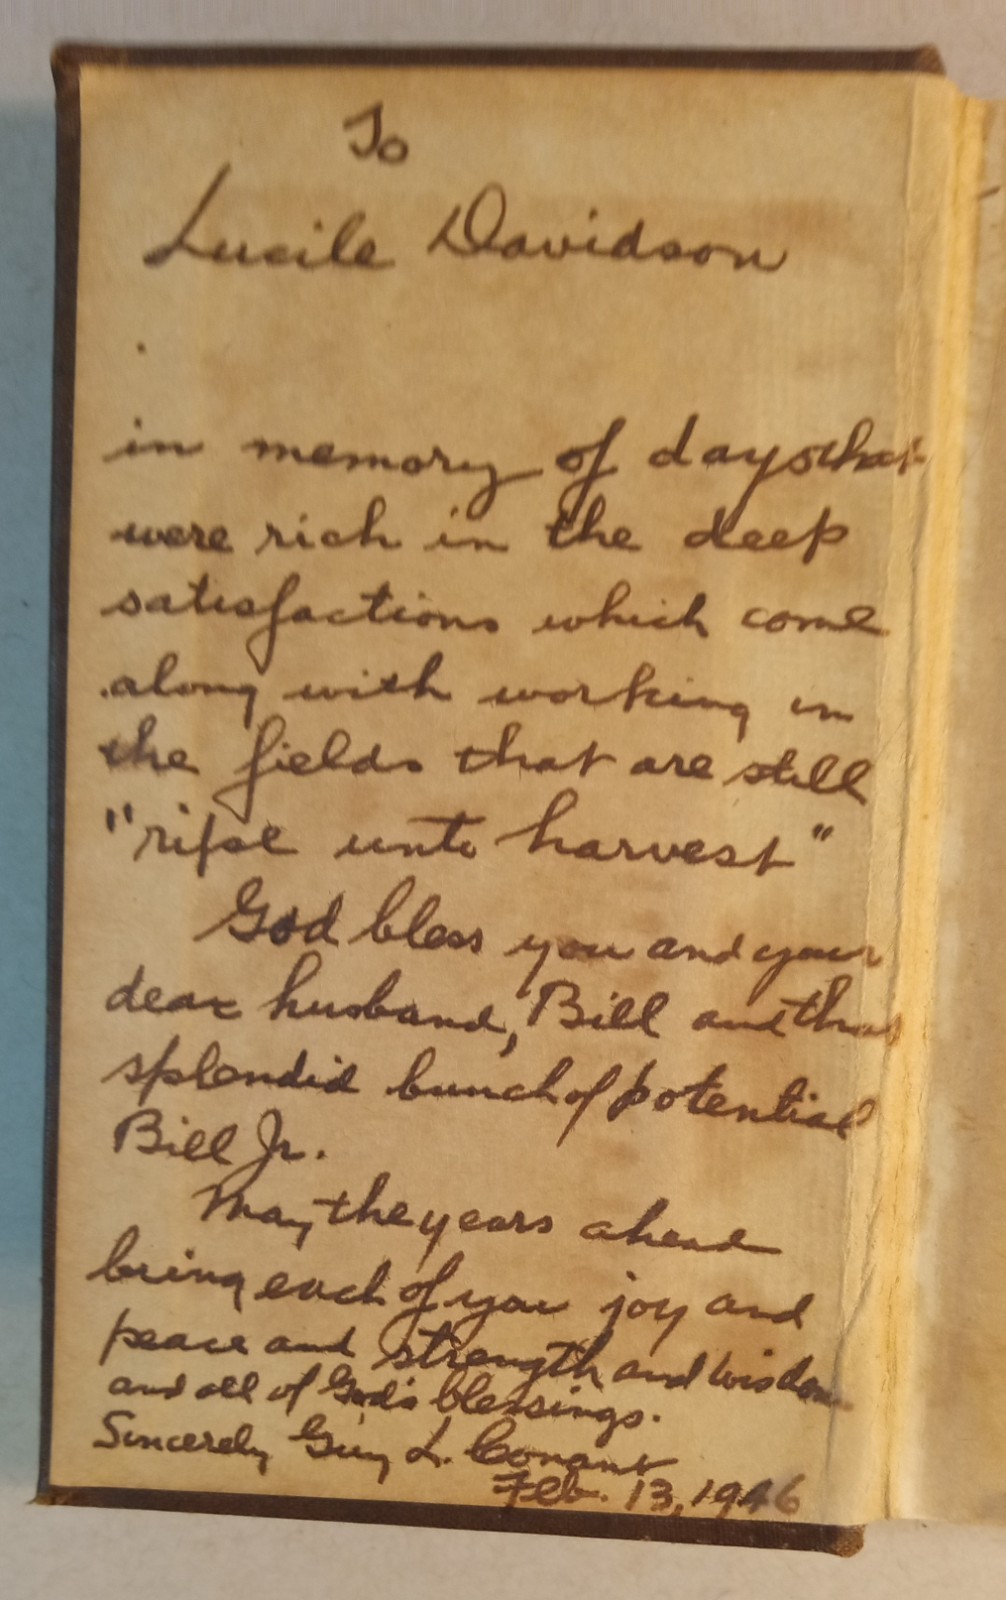 To
Lucile Davidson
in memory of days that
were rich in the deep
satisfactions which come
along with working in
the fields that are still
"ripe unto harvest"
God bless you and your
dear husband, Bill and that
splendid bunch of potential
Bill Jr.
May the years ahead
bring each of you joy and
peace and strength and wisdom
and all of God's blessings.
Sincerely Guy L. Conant
Feb. 13, 1946